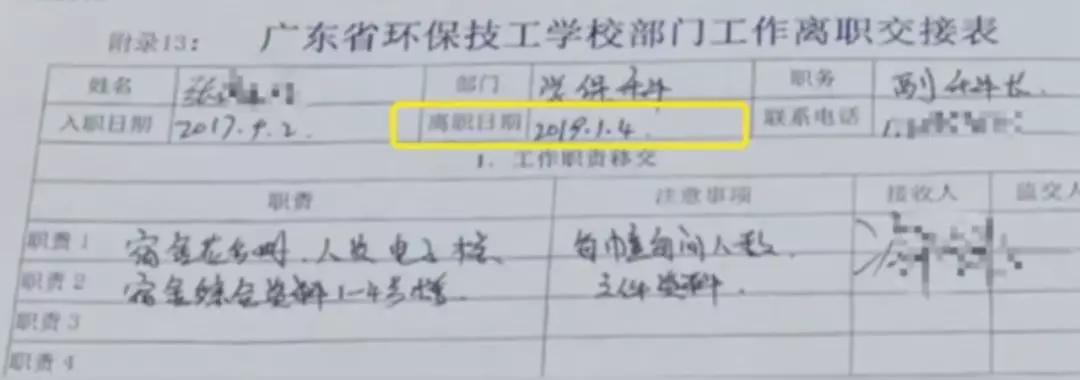 附录13： 广东省环保技工学校部门工作离职交接表
姓名 张 部门 学保 职务 副 长
入职日期 2017.9.2. 离职日期 2019.1.4. 联系电话 1.
1. 工作职责移交
职责 注意事项 接收人 监交人
职责1 宿舍花名册、人员电子档、 每个房间人数、
职责2 宿舍综合资料1-4号楼. 文件资料.
职责3
职责4